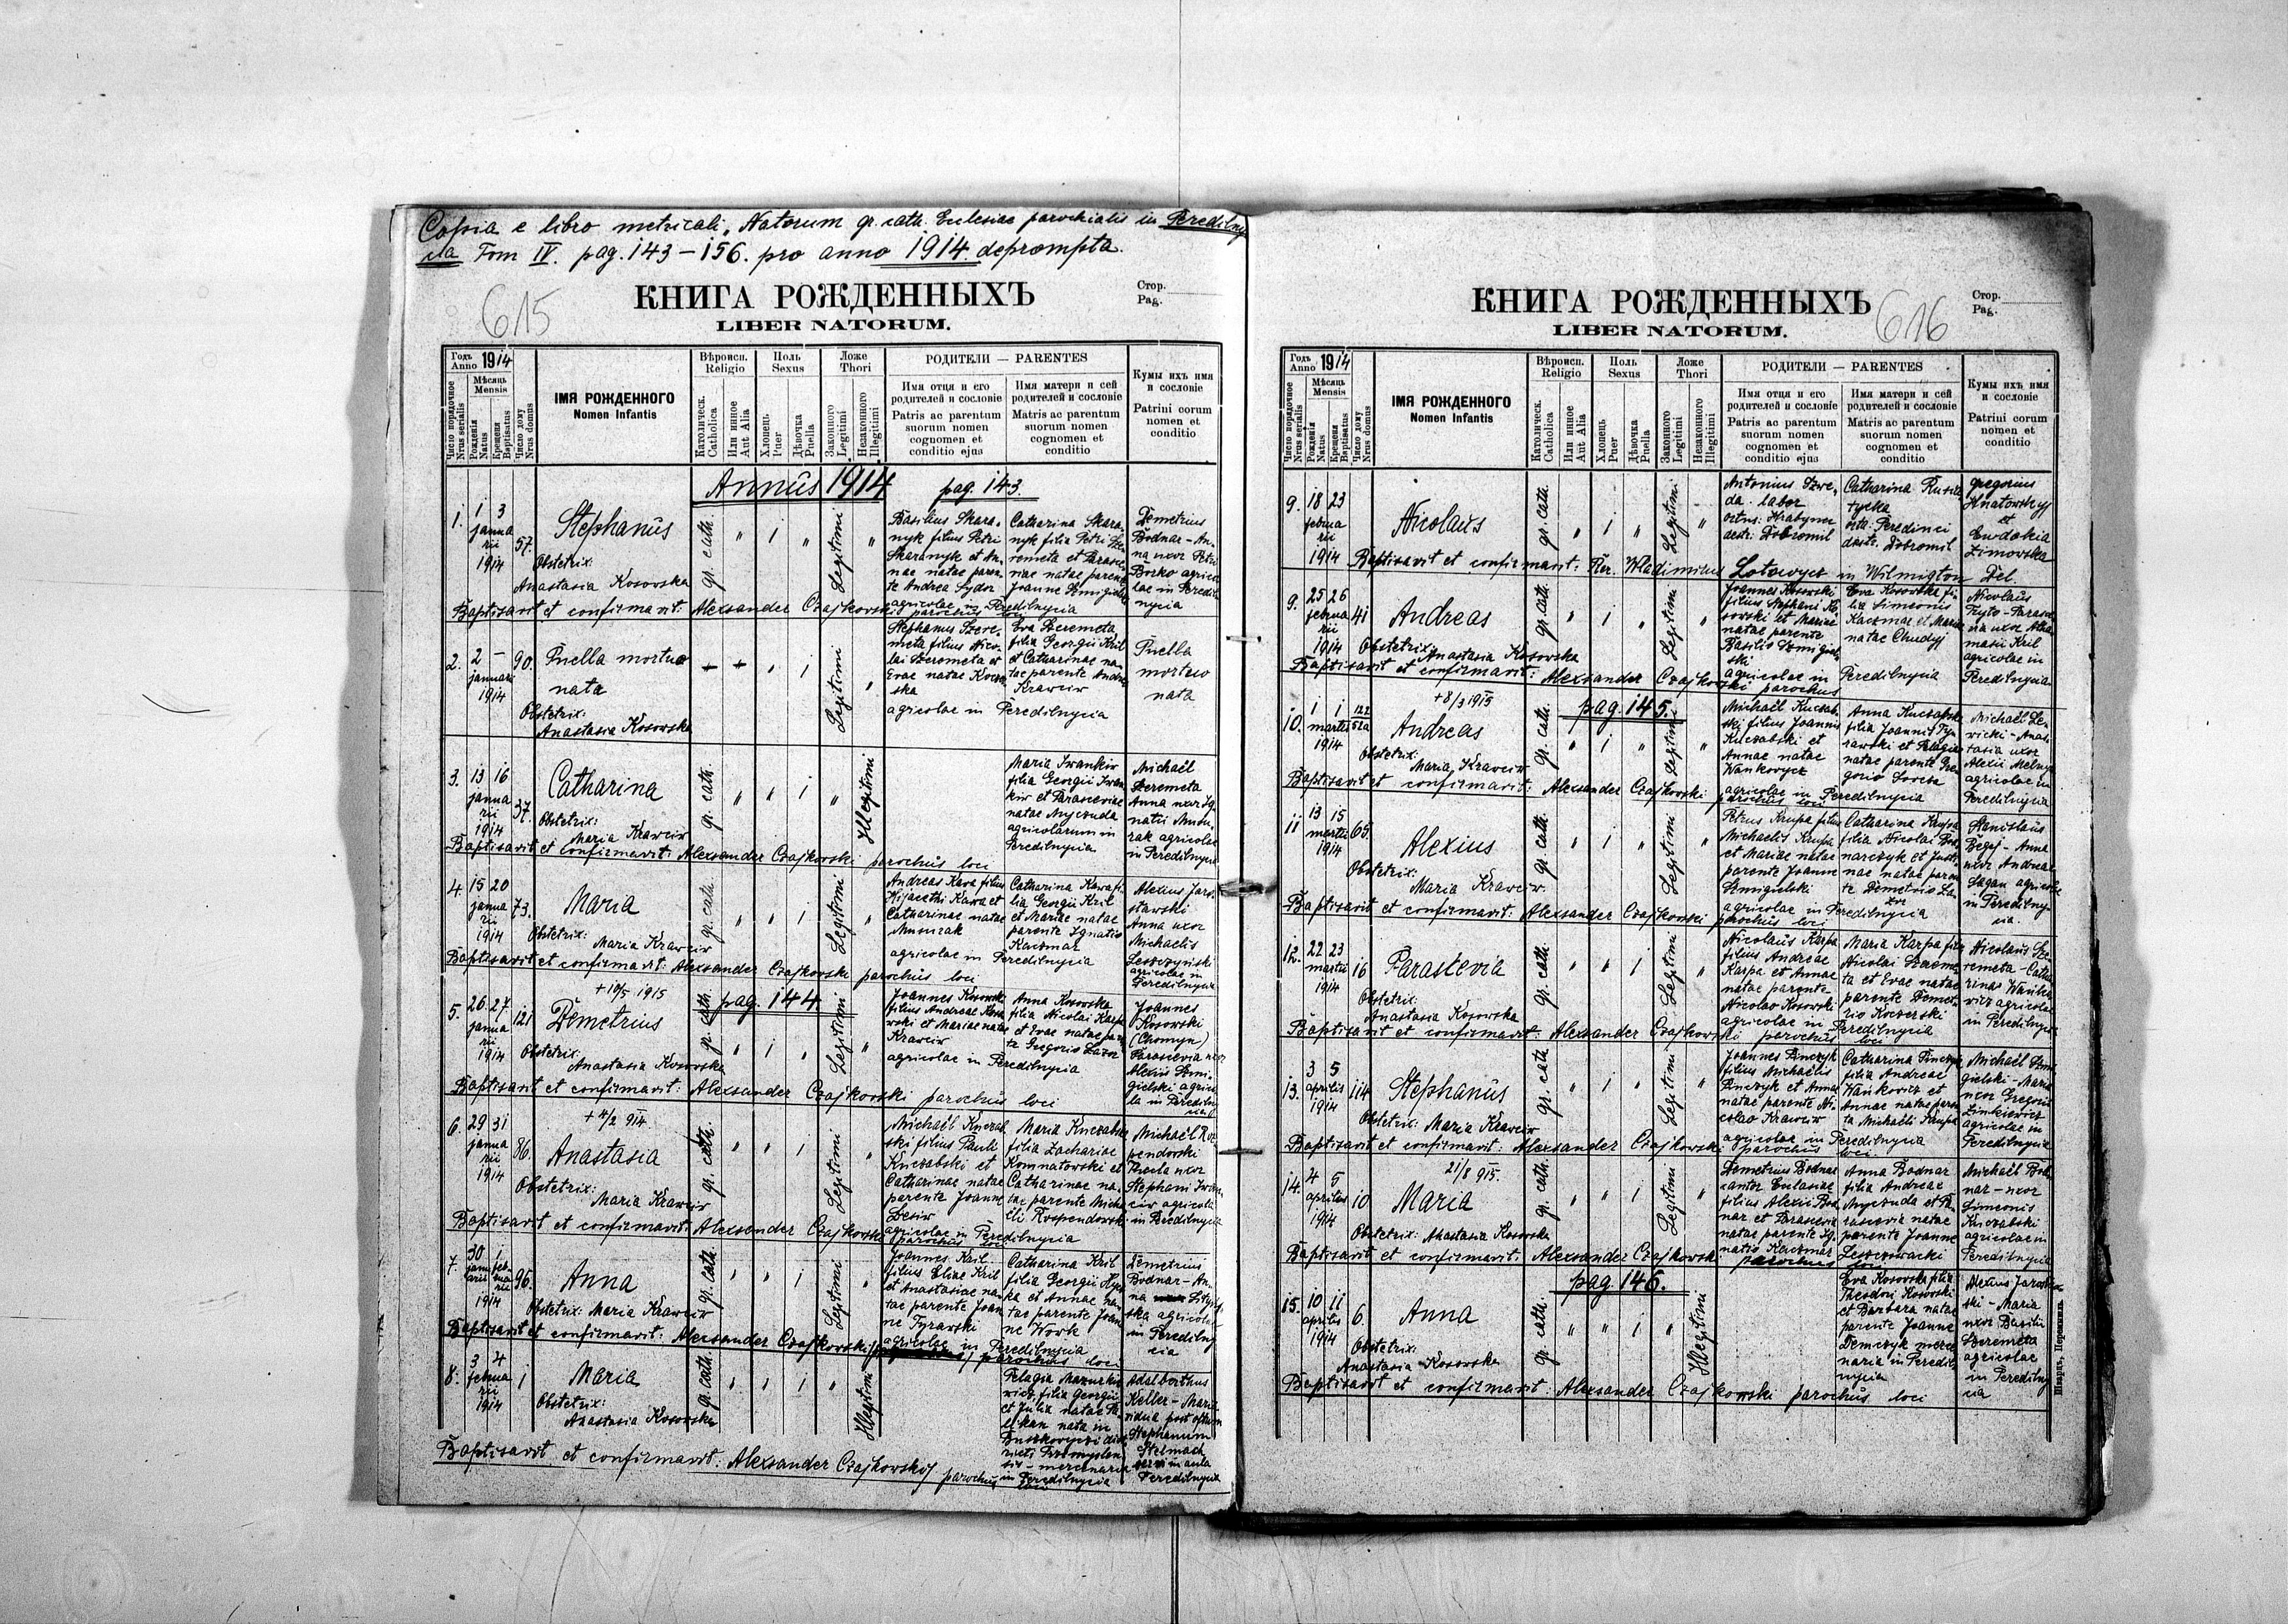 Copia e libro metricali, Natorum gr. cath. Ecclesiae parochialis in Peredilny
cia Tom IV. pag. 143 – 156. pro anno 1914. deprompta.
615
КНИГА РОЖДЕННЫХЪ
LIBER NATORUM.
Стор.
Pag.
Годъ
Anno 1914
Мѣсяць
Mensis
Число порядочное
Nrus serialis
Рожденія
Natus
Крещенія
Baptisatus
Число дому
Nrus domus
ІМЯ РОЖДЕННОГО
Nomen Infantis
Вѣроисп.
Religio
Католическ.
Catholica
Или инное
Aut Alia
Поль
Sexus
Хлопець
Puer
Дѣвочка
Puella
Ложе
Thori
Законного
Legitimi
Незаконного
Illegitimi
РОДИТЕЛИ — PARENTES
Имя отця и его
родителей и сословіе
Patris ac parentum
suorum nomen
cognomen et
conditio ejus
Имя матери и сей
родителей и сословіе
Matris ac parentum
suorum nomen
cognomen et
conditio
Кумы ихъ имя
и сословіе
Patrini eorum
nomen et
conditio
Annus 1914 pag. 143.
1. 1 3
januarii
1914
57.
Stephanus
Obstetrix:
Anastasia Kosovska
gr. cath. " 1 " Legitimi "
Basilius Skara-
nyk filius Petri
Skaranyk et An-
nae natae paren-
te Andrea Sydor
Catharina Skara-
nyk filia Petri Sze-
remeta et Parasce-
viae natae parente
Joanne Szmigielski
agricolae in Peredilnycia
Demetrius
Bodnar – An-
na uxor Petri
Borko agrico-
lae in Peredil-
nycia
Baptisavit et confirmavit: Alexander Czajkowskij parochus loci
2. 2 —
januarii
1914
90.
Puella mortua
nata
Obstetrix:
Anastasia Kosowska
+ + " 1 Legitimi "
Stephanus Szere-
meta filius Nico-
lai Szeremeta et
Evae natae
Eva Szeremeta
filia Georgii Kril
et Catharinae na-
tae parente Andrea
Krawciw
agricolae in Peredilnycia
Puella
mortuo
nata
3. 13 16
januarii
1914
37.
Catharina
Obstetrix:
Maria Krawciw
gr. cath. " " 1 " Illegitimi
Maria Iwankiw
filia Georgii Iwan-
kiw et Parasceviae
natae Nyczuda
agricolarum in
Peredilnycia
Michaël
Szeremeta
Anna uxor Ig-
natii Musu-
rak agricolae
in Peredilnycia
Baptisavit et confirmavit: Alexander Czajkowski parochus loci
4. 15 20
januarii
1914
73.
Maria
Obstetrix:
Maria Krawciw
gr. cath. " " 1 Legitimi "
Andreas Kawa filius
Hijacethi Kawa et
Catharinae natae
Musurak
Catharina Kawa fi-
lia Georgii Kril
et Mariae natae
parente Ignatio
Kaczmar
agricolae in Peredilnycia
Alexius Jaro-
sławski
Anna uxor
Michaelis
Leszczyński
agricolae in
Peredilnycia
Baptisavit et confirmavit: Alexander Czajkowski parochus loci
pag. 144.
5. 26 27
januarii
1914
121
+ 10/5 1915
Demetrius
Obstetrix:
Anastasia Kosowska
gr. cath. " 1 " Legitimi "
Joannes Kosowski
filius Andreae Koso-
wski et Mariae natae
Krawciw
Anna Kosowska
filia Nicolai Karpa
et Evae natae paren-
te Gregorio Lazor
agricolae in Peredilnycia
Joannes
Kosowski
(Chomyn)
Parascevia uxor
Alexii Szmi-
gielski agrico-
la in Peredilny-
cia
Baptisavit et confirmavit: Alexander Czajkowski parochus loci
6. 29 31
januarii
1914
86.
+ 4/2 914
Anastasia
Obstetrix:
Maria Krawciw
gr. cath. " " 1 Legitimi "
Michaël Kuczab-
ski filius Pauli
Kuczabski et
Catharinae natae
parente Joanne
Lesiw
Maria Kuczabska
filia Zachariae
Komnatowski et
Catharinae na-
tae parente Micha-
eli Rozpendowski
agricolae in Peredilnycia
Michaël Roz-
pendowski
Thecla uxor
Stephani Iwan-
ciw agricola
in Peredilnycia
Baptisavit et confirmavit: Alexander Czajkowski parochus loci
7. 30 1
januarii februarii
1914
96.
Anna
Obstetrix: Maria Krawciw
gr. cath. " " 1 Legitimi "
Joannes Kril
filius Eliae Kril
et Anastasiae na-
tae parente Joan-
ne Tyrawski
Catharina Kril
filia Georgii
et Annae na-
tae parente Joan-
ne Wowk
agricolae in Peredilnycia
Demetrius
Bodnar – An-
na
agricolae
in Peredilny-
cia
Baptisavit et confirmavit: Alexander Czajkowski parochus loci
8. 3 4
februarii
1914
1
Maria
Obstetrix:
Anastasia Kosowska
gr. cath. " " 1 " Illegitimi
Pelagia Mazurkie-
wicz filia Georgii
et Julia natae
nata in
Buszkowyczi dist-
ricti Przemyslen-
sis – mercenaria
in Peredilnycia
Adalberthus
Keller – Maria
vidua post oftum
Stephanum
Stelmach
servi in aula
Peredilnycia
Baptisavit et confirmavit: Alexander Czajkowskij parochus loci
616
КНИГА РОЖДЕННЫХЪ
LIBER NATORUM.
Стор.
Pag.
Годъ
Anno 1914
Мѣсяць
Mensis
Число порядочное
Nrus serialis
Рожденія
Natus
Крещенія
Baptisatus
Число дому
Nrus domus
ІМЯ РОЖДЕННОГО
Nomen Infantis
Вѣроисп.
Religio
Католическ.
Catholica
Или инное
Aut Alia
Поль
Sexus
Хлопець
Puer
Дѣвочка
Puella
Ложе
Thori
Законного
Legitimi
Незаконного
Illegitimi
РОДИТЕЛИ — PARENTES
Имя отця и его
родителей и сословіе
Patris ac parentum
suorum nomen
cognomen et
conditio ejus
Имя матери и сей
родителей и сословіе
Matris ac parentum
suorum nomen
cognomen et
conditio
Кумы ихъ имя
и сословіе
Patrini eorum
nomen et
conditio
9. 18 23
februarii
1914
Nicolaus
gr. cath. " 1 " Legitimi "
Antonius Szwe-
da. labor
ortus: Hrabyner
distr: Dobromil
Catharina
orta: Peredinci
distr. Dobromil
Gregorius
Hnatowskyj
et
Ewdokia
Zimovska
Baptisavit et confirmavit: Rev. Wladimirus Lotowycz in Wilmigton Del.
9. 25 26
februarii
1914
41
Andreas
Obstetrix:
Anastasia Kosowska
gr. cath. " 1 " Legitimi "
Joannes Kosowski
filius Stephani Ko-
sowski et Mariae
natae parente
Basilio Szmigiel-
ski
agricolae in Peredilnycia
Eva Kosowska fi-
lia Simeonis
Kaczmar et Mariae
natae Chudyj
Nicolaus
Tryto – Parasce-
via uxor Atha-
nasii Kril
agricolae in
Peredilnycia
Baptisavit et confirmavit: Alexander Czajkowski parochus
pag. 145.
10. 1 1
martii
1914
122
52a
+ 8/3 1915
Andreas
Obstetrix:
Maria Krawciw
gr. cath. " 1 " Legitimi "
Michaël Kuczab-
ski filius Joannis
Kuczabski et
Annae natae
Wankovycz
Anna Kuczabska
filia Joannis Ty-
rawski et Pelagiae
natae parente Gre-
gorio
agricolae in Peredilnycia
Michaël Le-
wicki – Anas-
tasia uxor
Alexii Melnyk
agricolae in
Peredilnycia
Baptisavit et confirmavit: Alexander Czajkowski parochus loci
11 13 15
martii
1914
65.
Alexius
Obstetrix:
Maria Krawciw.
gr. cath. " 1 " Legitimi "
Petrus Krupa filius
Michaelis Krupa
et Mariae natae
parente Joanne
Szmigielski
Catharina Krupa
filia Nicolai Bod-
narczyk et Justi-
nae natae paren-
te Demetrio La-
zor
agricolae in Peredilnycia
Stanislaus
Begej – Anna
uxor Andreae
Sagan agricolae
in Peredilny-
cia.
Baptisavit et confirmavit: Alexander Czajkowski parochus loci
12. 22 23
martii
1914
16
Parascevia
Obstetrix:
Anastasia Kosowska
gr. cath. " " 1 Legitimi "
Nicolaus Karpa
filius Andreae
Karpa et Annae
natae parente
Nicolao Kosowski
Maria Karpa filia
Nicolai Szereme-
ta et Evae natae
parente Demet-
rio Koczerski
agricolae in Peredilnycia
Nicolaus Sze-
remeta – Catha-
rinas Wanko-
wicz agricolae
in Peredilnycia
Baptisavit et confirmavit: Alexander Czajkowski parochus loci
13. 3 5
aprilis
1914
114
Stephanus
Obstetrix: Maria Krawciw
gr. cath. " 1 " Legitimi "
Joannes Pinczyk
filius Michaelis
Pinczyk et Annae
natae parente Ni-
colao Krawciw
Catharina Pinczyk
filia Andreae
Wankowicz et
Annae natae paren-
te Michaeli Krupa
agricolae in Peredilnycia
Michaël Szmi-
gielski – Maria
uxor Gregorii
Zinkiewicz
agricolae in
Peredilnycia
Baptisavit et confirmavit: Alexander Czajkowski parochus loci
14. 4 5
aprilis
1914
10
21/8 915.
Maria
Obstetrix: Anastasia Kosowska
gr. cath. " " 1 Legitimi "
Demetrius Bodnar
cantor Ecclesiae
filius Alexii Bod-
nar et Parascevia
natae parente Ig-
natio Kaczmar
Anna Bodnar
filia Andreae
Nyczuda et Pa-
rascevia natae
parente Joanne
Leszczowacki
Michaël Bod-
nar – uxor
Simeonis
Kuczabski
agricolae in
Peredilnycia
Baptisavit et confirmavit: Alexander Czajkowski parochus loci
pag. 146.
15. 10 11
aprilis
1914
6.
Anna
Obstetrix:
Anastasia Kosowska
gr. cath. " " 1 " Illegitimi
Eva Kosovska filia
Theodori Kosovski
et Barbara natae
parente Joanne
Demczyk merce-
naria in Peredil-
nycia
Alexius Jarosław-
ski – Maria
uxor Basilii
Szeremeta
agricolae
in Peredilny-
cia
Baptisavit et confirmavit: Alexander Czajkowski parochus loci